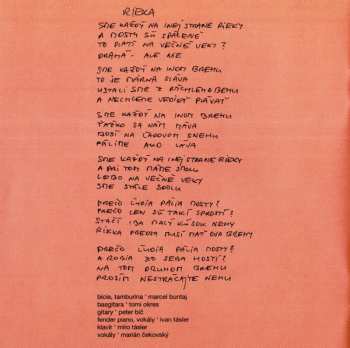 RIEKA
SME KAŽDÝ NA INEJ STRANE RIEKY
A MOSTY SÚ SPÁLENÉ
TO PLATÍ NA VEČNÉ VEKY?
DRÁMA - ALE NIE
SME KAŽDÝ NA INOM BREHU
TO JE MÁRNA SLÁVA
USTALI SME Z RÝCHLEHO BEHU
A NECHCEME VEDIEŤ PLÁVAŤ
SME KAŽDÝ NA INOM BREHU
ŤAŽKO SA NÁM MÁVA
BOSÍ NA ĽADOVOM SNEHU
PÁLIME AKO LÁVA
SME KAŽDÝ NA INEJ STRANE RIEKY
A PRI TOM MÁME SPOLU
LEBO NA VEČNÉ VEKY
SME STÁLE SPOLU
PREČO ĽUDIA PÁLIA MOSTY?
PREČO LEN SÚ TAKÍ SPROSTÍ?
STAČÍ IBA MALÝ KÚSOK NEHY
RIEKA PREDSA MUSÍ MAŤ DVA BREHY
PREČO ĽUDIA PÁLIA MOSTY?
A ROBIA ZO SEBA HOSTÍ?
NA TOM DRUHOM BREHU
PROSÍM NESTRÁCAJTE NEHU
bicie, tamburína / marcel buntaj
basgitara / tomi okres
gitary / peter bič
fender piano, vokály / ivan tásler
klavír / miro tásler
vokály / marián čekovský